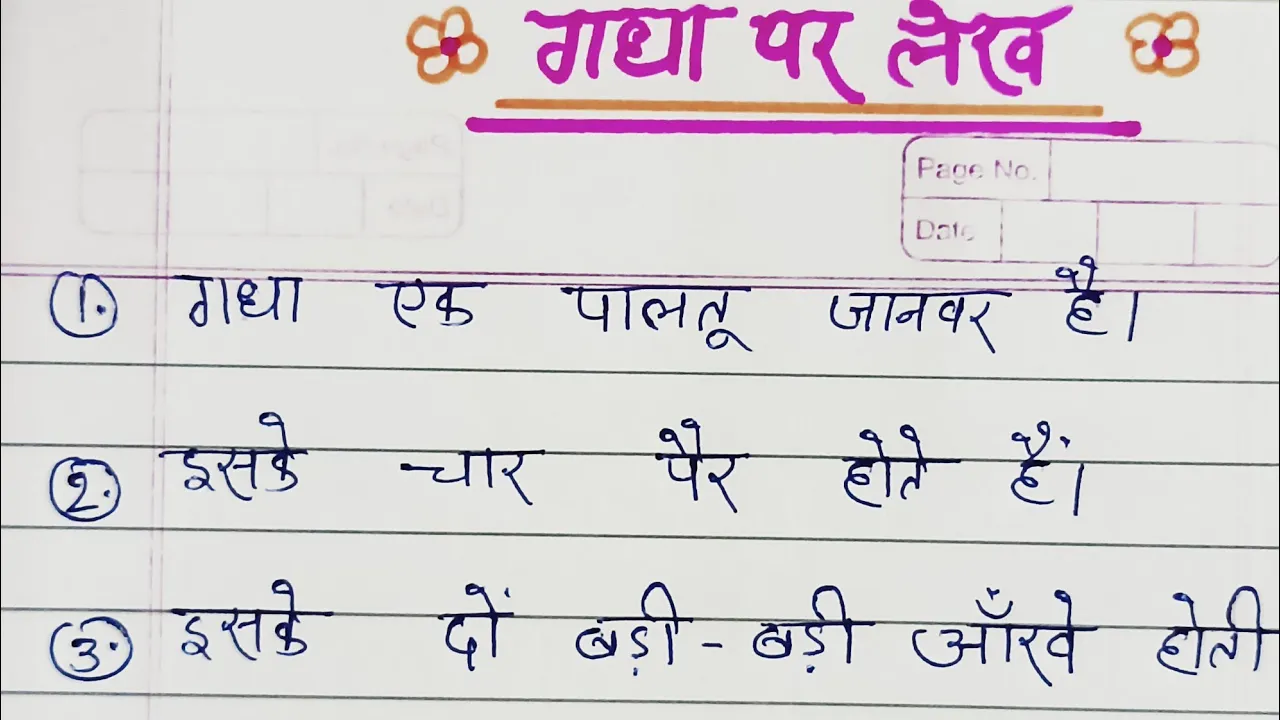 गधा पर लेख
Page No.
Date
1. गधा एक पालतू जानवर है।
2. इसके चार पैर होते हैं।
3. इसके दों बड़ी - बड़ी आँखे होती